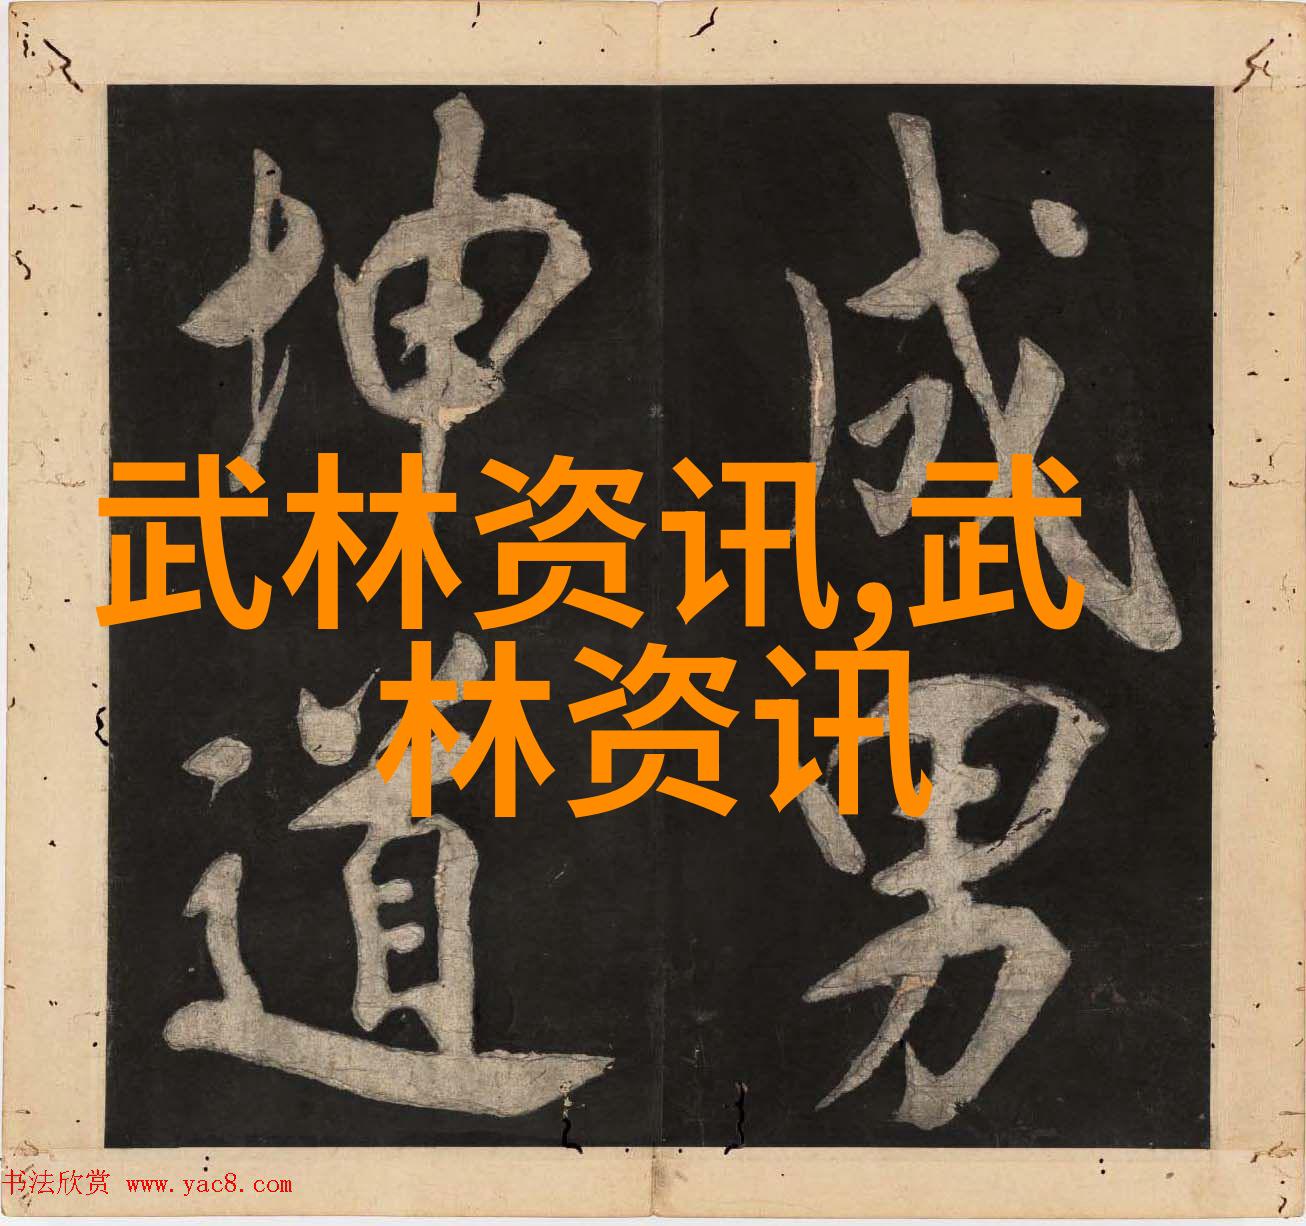 成男
坤道
武林资讯,武
林资讯
书法欣赏 www.yac8.com